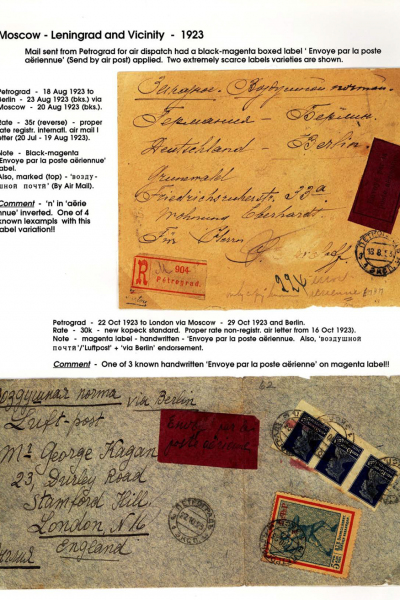 Moscow - Leningrad and Vicinity - 1923
Mail sent from Petrograd for air dispatch had a black-magenta boxed label ' Envoye par la poste
aériennue' (Send by air post) applied. Two extremely scarce labels varieties are shown.
Petrograd - 18 Aug 1923 to
Berlin - 23 Aug 1923 (bks.) via
Moscow - 20 Aug 1923 (bks.)
Rate - 35r (reverse) - proper
rate registr. internatl. air mail l
etter (20 Jul - 19 Aug 1923).
Note - Black-magenta
'Envoye par la poste aériennue'
label.
Also, marked (top) - 'возду-
шной почти' (By Air Mail).
Comment - 'n' in 'aérie
nnue' inverted. One of 4
known lexampls with this
label variation!!
Заказное. Воздушной почтой.
Германия - Берлин.
Deutschland - Berlin.
Grunewald
Friedrichsruherstr. 33a
Wohnung Eberhardt
Für Herrn
R
№ 904
Petrograd.
Petrograd - 22 Oct 1923 to London via Moscow - 29 Oct 1923 and Berlin.
Rate - 30k - new kopeck standard. Proper rate non-registr. air letter from 16 Oct 1923).
Note - magenta label - handwritten - 'Envoye par la poste aérienne'. Also, 'воздушной
почти'/'Luftpost' + 'via Berlin' endorsement.
Comment - One of 3 known handwritten 'Envoye par la poste aérienne' on magenta label!!
62
Воздушная почта via Berlin
Luft-post
Envoyé par la
poste aérienne
Mr George Kagan
23, Durley Road
Stamford Hill,
London, N 16
England
Англия